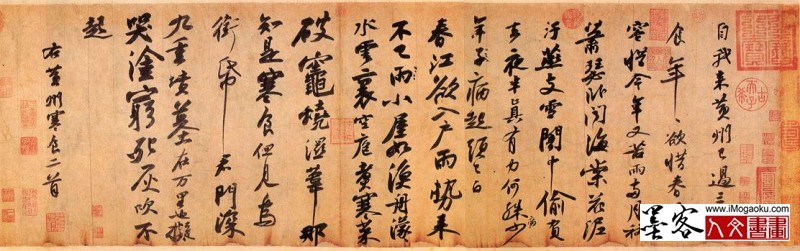 自我来黄州已過三
食年〻欲惜春
容惜今年又苦雨兩月秋
蕭瑟卧聞海棠花泥
汙燕支雪闇中偷負
去夜半真有力何殊少
年子病起頭已白
春江欲入戶雨勢来
不已雨小屋如漁舟濛〻
水雲裏空庖煮寒菜
破竈燒濕葦那
知是寒食但見烏
銜帋君門深
九重墳墓在万里也擬
哭塗窮死灰吹不
起
右黄州寒食二首
墨客
www.iMogaoku.com
人文書畫